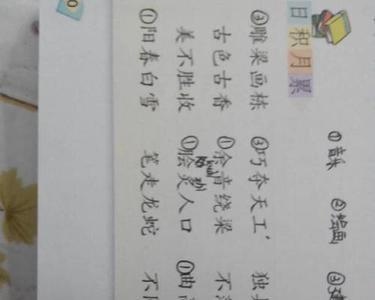 ①音乐 ②绘画 ③建
日积月累
③雕梁画栋 ③巧夺天工 独
古色古香 ①余音绕梁 不
美不胜收 ①脍炙人口 ①曲高
①阳春白雪 笔走龙蛇 不